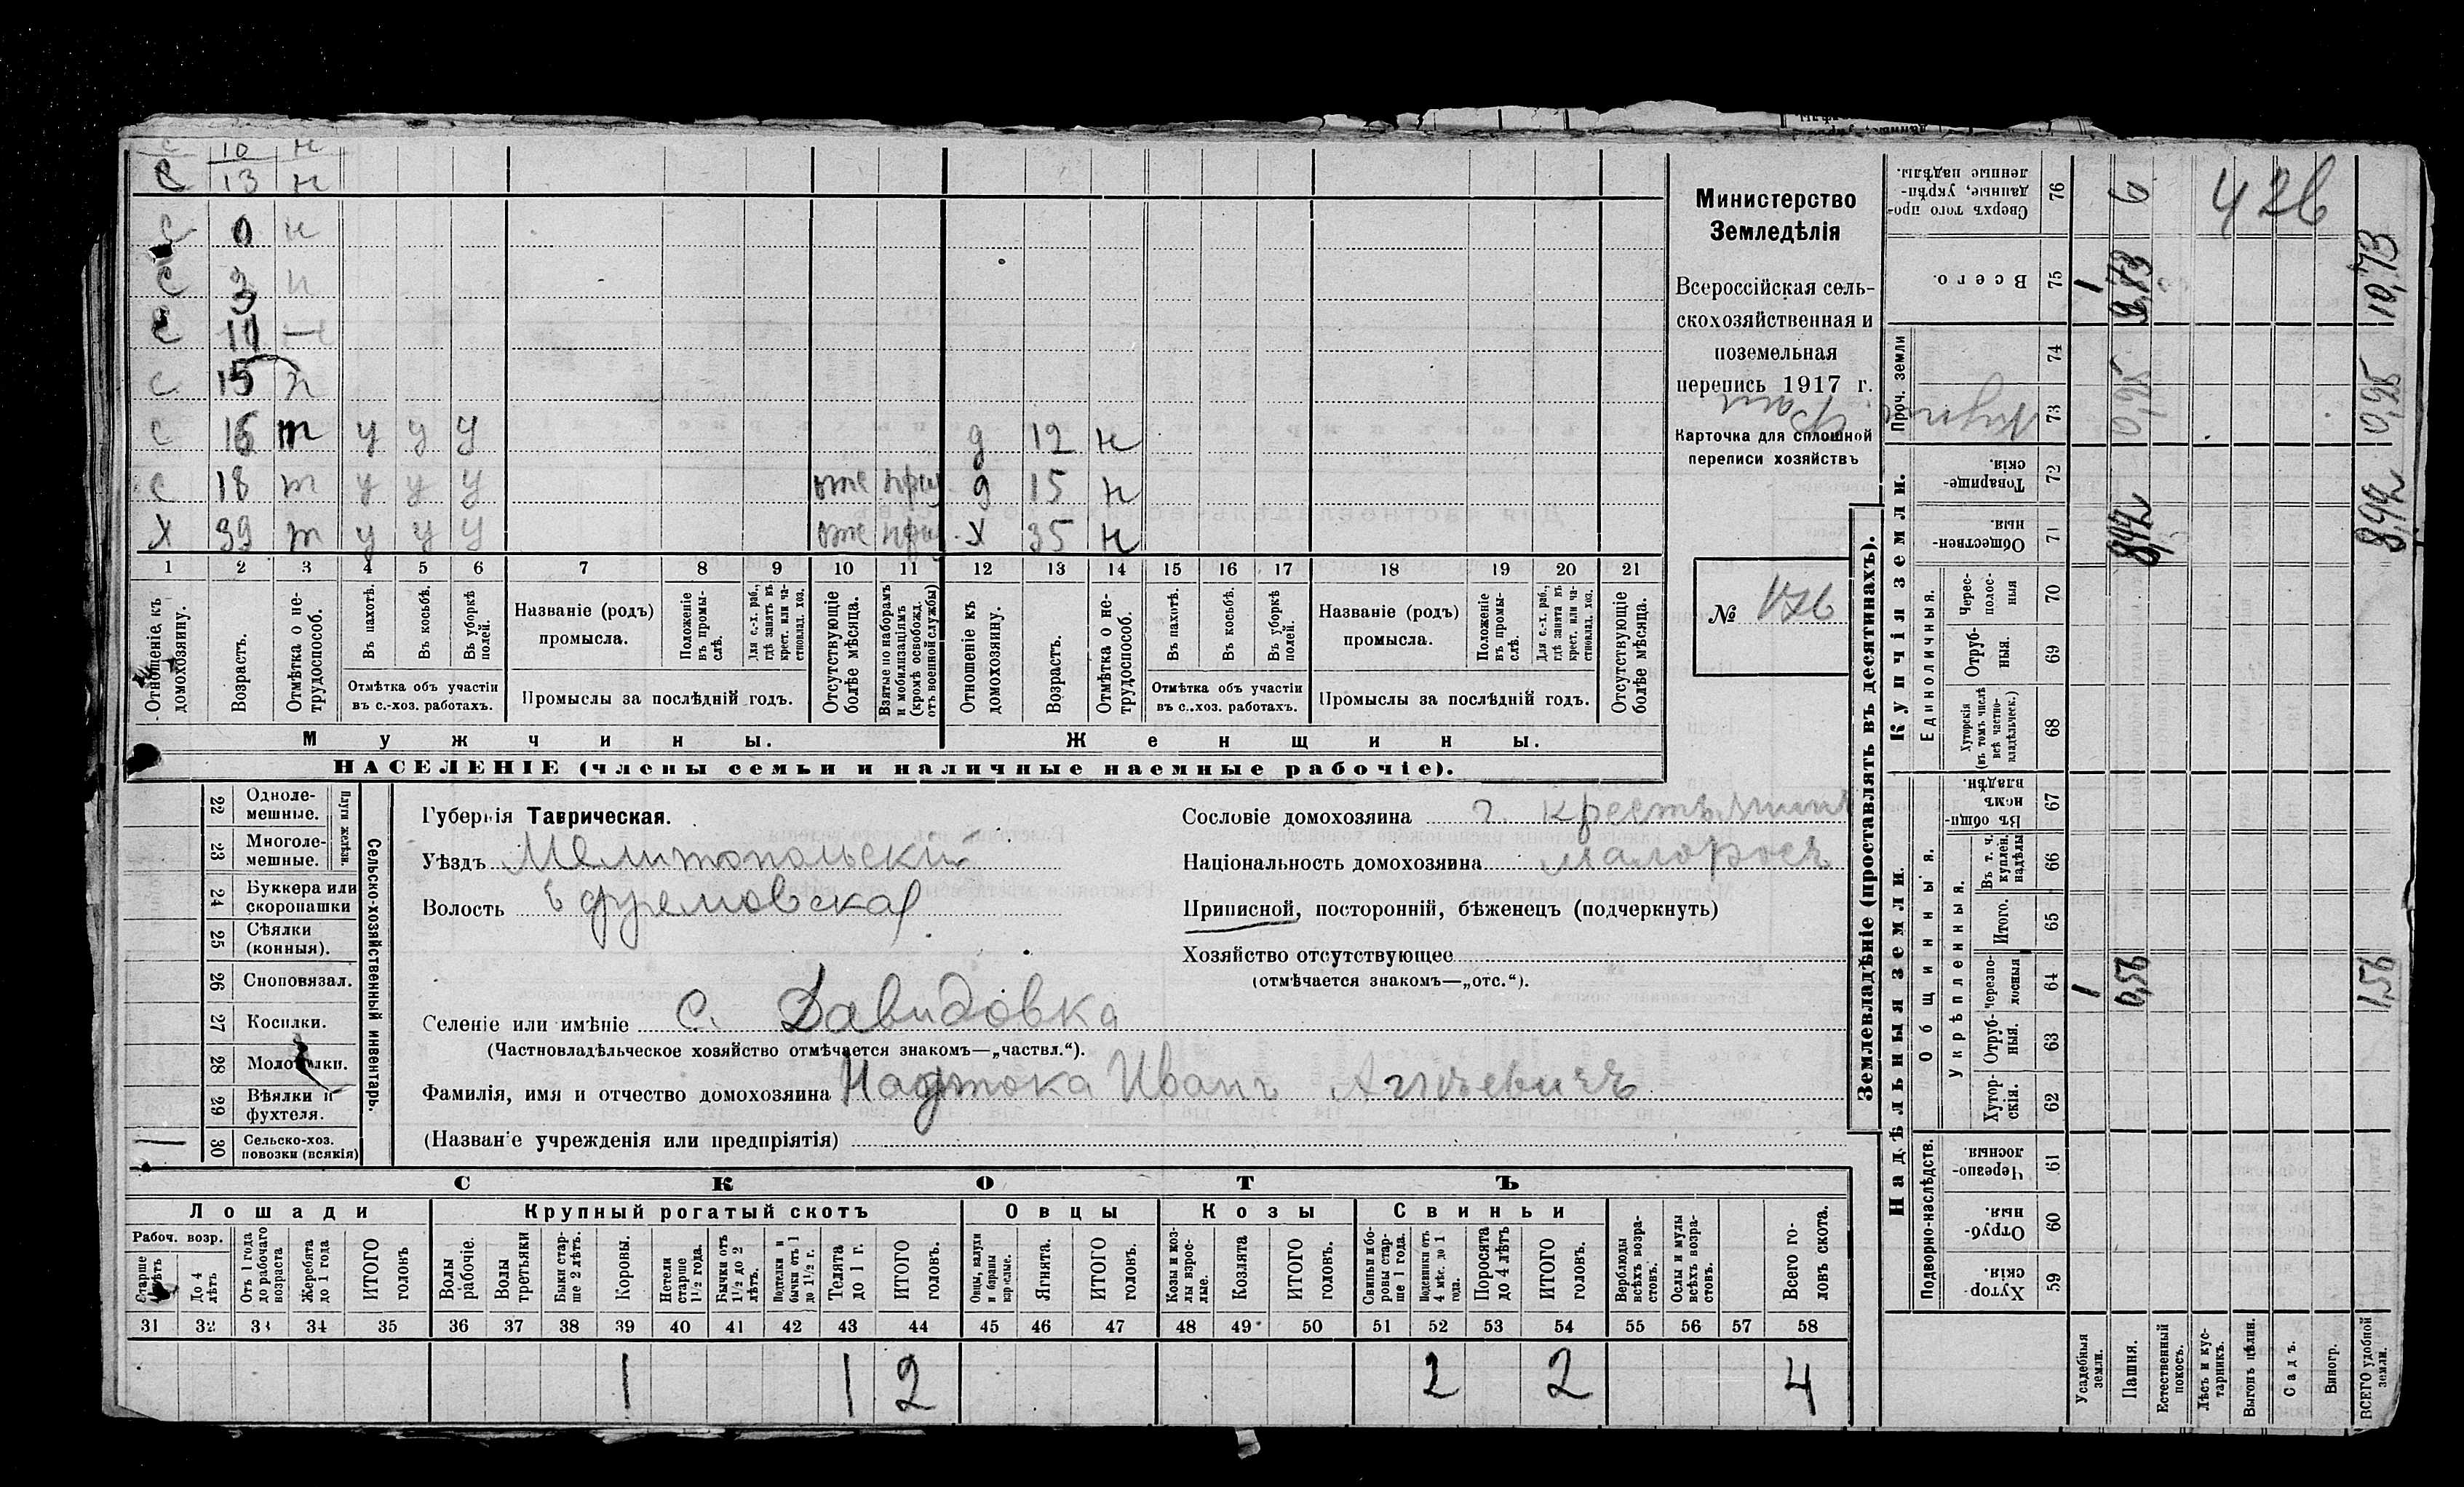 С 10 н
С 13 н
С 0 н
С 3 н
С 11 —
С 15 н
С 16 т у у у д 12 н
С 18 т у у у оте при д 15 н
Х 39 т у у у оте при Х 35 н
1 2 3 4 5 6 7 8 9 10 11 12 13 14 15 16 17 18 19 20 21
Отношеніе къ домохозяину.
Возрастъ.
Отмѣтка о не-трудоспособ.
Въ пахотѣ.
Въ косьбѣ.
Въ уборкѣ полей.
Названіе (родъ) промысла.
Положеніе въ промы-слѣ.
Для с.-х. раб., гдѣ занятъ въ крест. или ча-стновлад. хоз.
Отсутствующіе болѣе мѣсяца.
Взятые по наборамъ и мобилизаціямъ (кромѣ освобожд. отъ военной службы)
Отношеніе къ домохозяину.
Возрастъ.
Отмѣтка о не-трудоспособ.
Въ пахотѣ.
Въ косьбѣ.
Въ уборкѣ полей.
Названіе (родъ) промысла.
Положеніе въ промы-слѣ.
Для с.-х. раб., гдѣ занята въ крест. или ча-стновлад. хоз.
Отсутствующіе болѣе мѣсяца.
Отмѣтка объ участіи въ с.-хоз. работахъ.
Промыслы за послѣдній годъ.
Отмѣтка объ участіи въ с.-хоз. работахъ.
Промыслы за послѣдній годъ.
Мужчины.
Женщины.
НАСЕЛЕНІЕ (члены семьи и наличные наемные рабочіе).
Министерство
Земледѣлія
Всероссійская сель-
скохозяйственная и
поземельная
перепись 1917 г.
Карточка для сплошной
переписи хозяйствъ
№ 176
Сельско-хозяйственный инвентарь.
Плуги желѣзн.
22 Одноле-мешные.
23 Многоле-мешные.
24 Буккера или скоропашки
25 Сѣялки (конныя).
26 Сноповязал.
27 Косилки.
28 Молотилки.
29 Вѣялки и фухтеля.
30 Сельско-хоз. повозки (всякія)
Губернія Таврическая.
Уѣздъ Мелитопольскій
Волость Ефремовская
Селеніе или имѣніе с. Давидовка
(Частновладѣльческое хозяйство отмѣчается знакомъ—„частвл.“).
Фамилія, имя и отчество домохозяина Надтока Иванъ
(Названіе учрежденія или предпріятія)
Сословіе домохозяина крестьянинъ
Національность домохозяина малороссъ
Приписной, посторонній, бѣженецъ (подчеркнуть)
Хозяйство отсутствующее
(отмѣчается знакомъ—„отс.“).
СКОТЪ
Лошади Крупный рогатый скотъ Овцы Козы Свиньи
Рабоч. возр.
Старше 4 лѣтъ
До 4 лѣтъ
Отъ 1 года до рабочаго возраста
Жеребята до 1 года
ИТОГО головъ
Волы рабочіе.
Волы третьяки
Быки стар-ше 2 лѣтъ.
Коровы.
Нетели старше 1½ года.
Бычки отъ 1½ до 2 лѣтъ.
Подтелки и бычки отъ 1 до 1½ г.
Телята до 1 г.
ИТОГО головъ.
Овцы, валухи и бараны взрослые.
Ягнята.
ИТОГО головъ.
Козы и коз-лы взрос-лые.
Козлята
ИТОГО головъ.
Свиньи и бо-ровы стар-ше 1 года.
Подсвинки отъ 4 мѣс. до 1 года.
Поросята до 4 лѣтъ
ИТОГО головъ.
Верблюды всѣхъ возра-стовъ.
Ослы и мулы всѣхъ возра-стовъ.
Всего го-ловъ скота.
31 32 33 34 35 36 37 38 39 40 41 42 43 44 45 46 47 48 49 50 51 52 53 54 55 56 57 58
1 1 2 2 2 4
Землевладѣніе (проставлять въ десятинахъ).
Надѣльныя земли.
Купчія земли.
Проч. земли
Подворно-наслѣдств.
Общинныя.
Укрѣпленныя.
Единоличныя.
Хутор-скія. 59
Отруб-ныя. 60
Черезпо-лосныя. 61
Хутор-скія. 62
Отруб-ныя. 63
Черезпо-лосныя 64 1 0,56 1,56
Итого. 65
Въ т. ч. куплен. надѣлы 66
Въ общи-номъ владѣн. 67
Хуторскія (въ томъ числѣ всѣ частно-владѣльческ.) 68
Отруб-ныя. 69
Черес-полос-ныя 70
Обществен-ныя. 71 8,92
Товарище-скія. 72
73 0,25 0,25
74
Всего. 75 1 9,73 10,73
Сверхъ того про-данные, укрѣп-ленные надѣлы. 76 6
426
Усадебныя земли.
Пашня.
Естественный покосъ.
Лѣсъ и кус-тарникъ.
Выгонъ цѣлин.
Садъ.
Виногр.
ВСЕГО удобной земли.